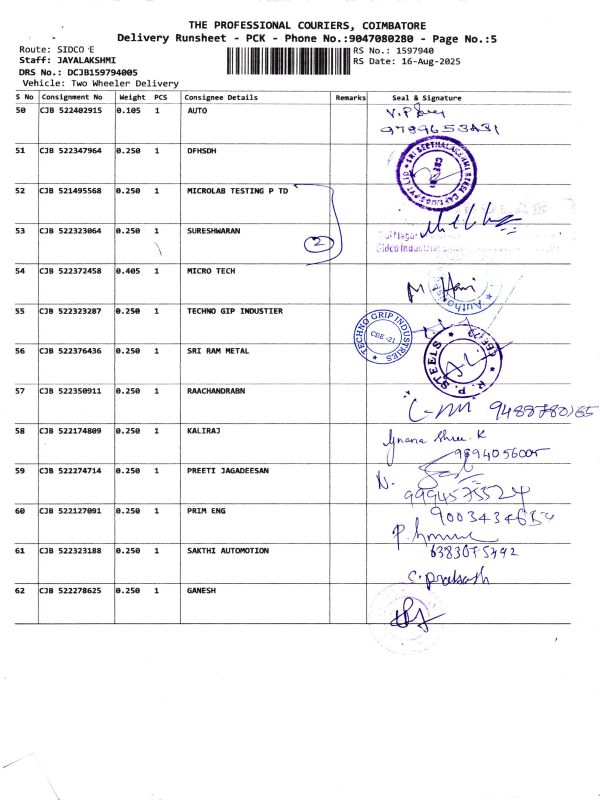 THE PROFESSIONAL COURIERS, COIMBATORE
Delivery Runsheet - PCK - Phone No.:9047080280 - Page No.:5
Route: SIDCO E
Staff: JAYALAKSHMI
DRS No.: DCJB159794005
Vehicle: Two Wheeler Delivery
RS No.: 1597940
RS Date: 16-Aug-2025
S No Consignment No Weight PCS Consignee Details Remarks Seal & Signature
50 CJB 522402915 0.105 1 AUTO
51 CJB 522347964 0.250 1 DFHSDH
SRI SEETHALAKSHMI STEEL CASTINGS PVT LTD
52 CJB 521495568 0.250 1 MICROLAB TESTING P TD
53 CJB 522323064 0.250 1 SURESHWARAN 2
Sidco Industrial
54 CJB 522372458 0.405 1 MICRO TECH
55 CJB 522323287 0.250 1 TECHNO GIP INDUSTIER
TECHNO GRIP INDUSTRIES
CBE -21
56 CJB 522376436 0.250 1 SRI RAM METAL
R.P. STEELS
57 CJB 522350911 0.250 1 RAACHANDRABN
58 CJB 522174809 0.250 1 KALIRAJ Gnana Shree. K
59 CJB 522274714 0.250 1 PREETI JAGADEESAN
60 CJB 522127091 0.250 1 PRIM ENG
61 CJB 522323188 0.250 1 SAKTHI AUTOMOTION
C. Prakash
62 CJB 522278625 0.250 1 GANESH